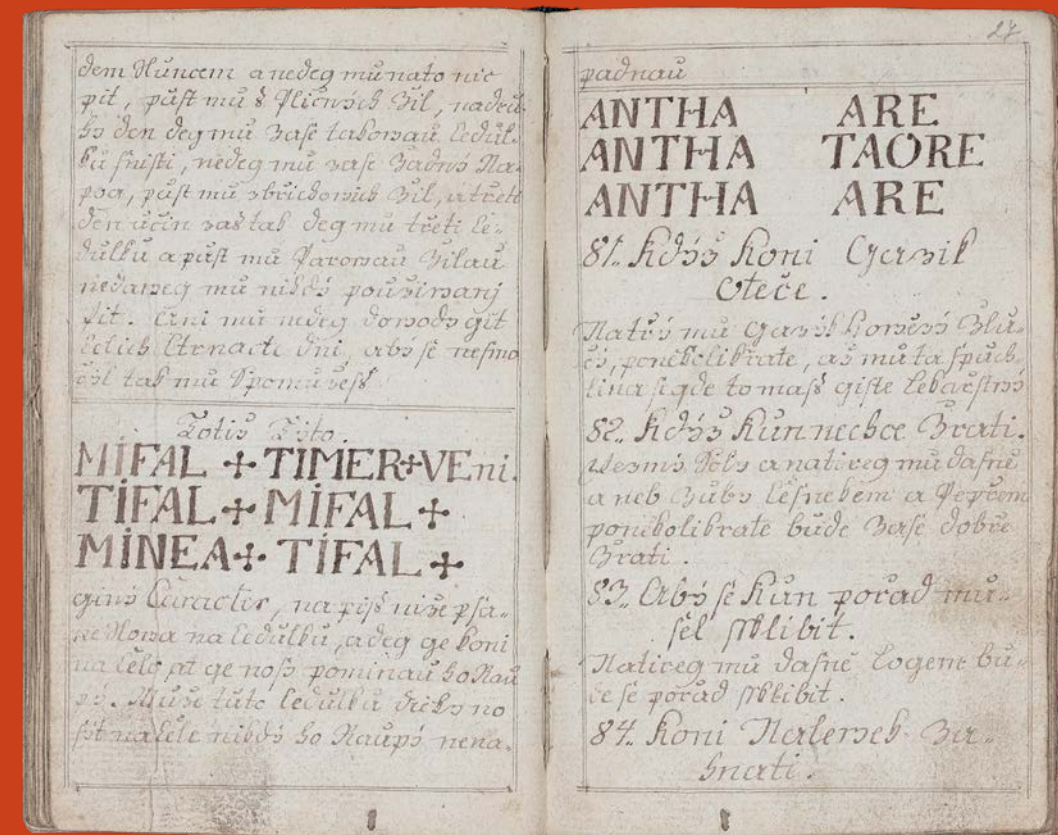 dem Sluncem a nedeg mu nato nic
pit, pust mu š Plicných Žil, nadru-
hy den deg mu zase takowau cedul-
ku snisti, nedeg mu zase žadny Na-
pog, pust mu zbrichowich Žil, a třeti
den učin zas tak deg mu třeti ce-
dulku a pust mu Parowau Žilau
nedaweg mu nikdy použiwanj
pit. Ani mu nedeg do wody git
celich čtrnacte dni, aby se nesmo
čyl tak mu Spomužesš
Totiž Tyto.
MIFAL + TIMER + VEni.
TIFAL + MIFAL +
MINEA + TIFAL +
giny Caracter, na pišs niže psa-
ne Slowa na cedulku, a deg ge koni
na čelo, at ge nosy pominau ho Rau
py. Musy tuto cedulku dicky no
syt na čele nikdy ho Raupy nena-
27.
padnau
ANTHA ARE
ANTHA TAORE
ANTHA ARE
81. Kdyz Koni Gazik
Oteče.
Natry mu Gazyk howězy Žlu-
čy, ponekolikrate, až mu ta spuch-
lina segde to mass giste lekařstwy
82. Kdyz Kun nechce Žrati.
Wezmy Soly a natireg mu dasně
a neb Zuby česnekem a Pepřem
ponekolikrate bude Zase dobře
Žrati.
83. Aby se Kun pořad mu-
sel ssklibit.
Natireg mu dasně Logem bu-
de se pořad ssklibit.
84. Koni Nalewek Za-
hnati.